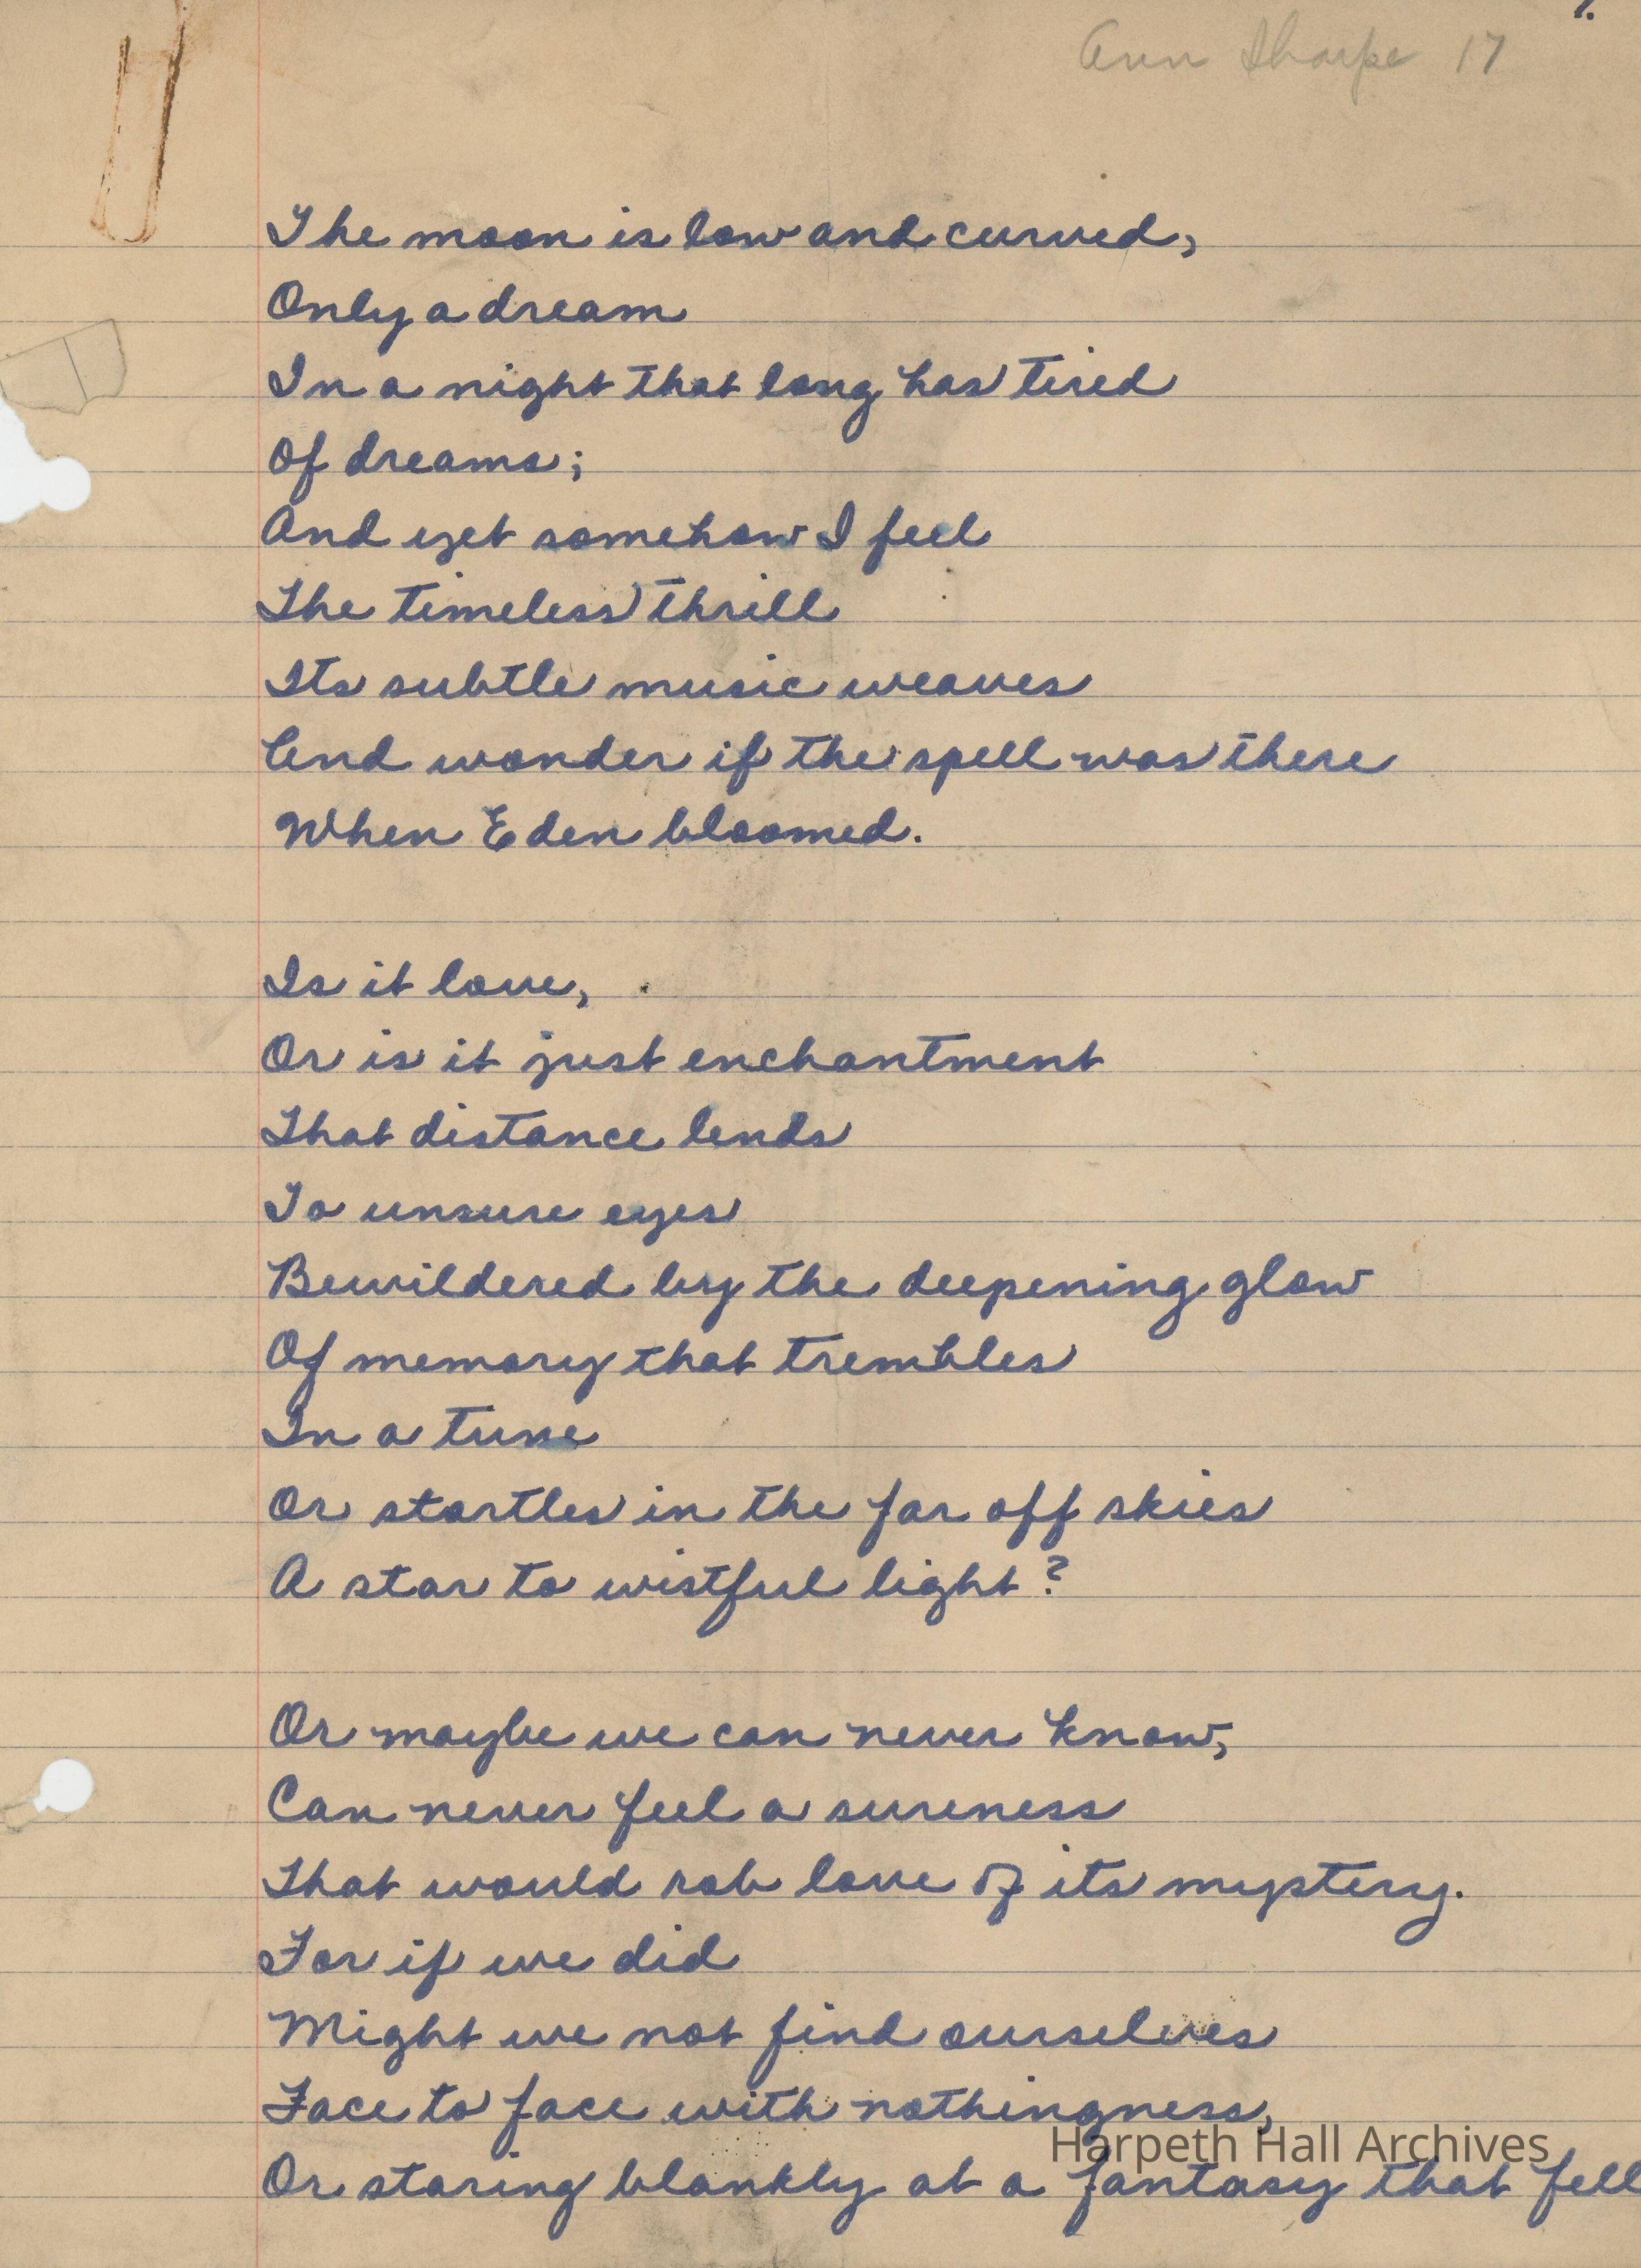 Ann Sharpe 17
The moon is low and curved,
Only a dream
In a night that long has tired
Of dreams;
And yet somehow I feel
The timeless thrill
Its subtle music weaves
And wonder if the spell was there
When Eden bloomed.
Is it love,
Or is it just enchantment
That distance lends
To unsure eyes
Bewildered by the deepening glow
Of memory that trembles
In a tune
Or startles in the far off skies
A star to wistful light?
Or maybe we can never know,
Can never feel a sureness
That would rob love of its mystery.
For if we did
Might we not find ourselves
Face to face with nothingness,
Harpeth Hall Archives
Or staring blankly at a fantasy that fell